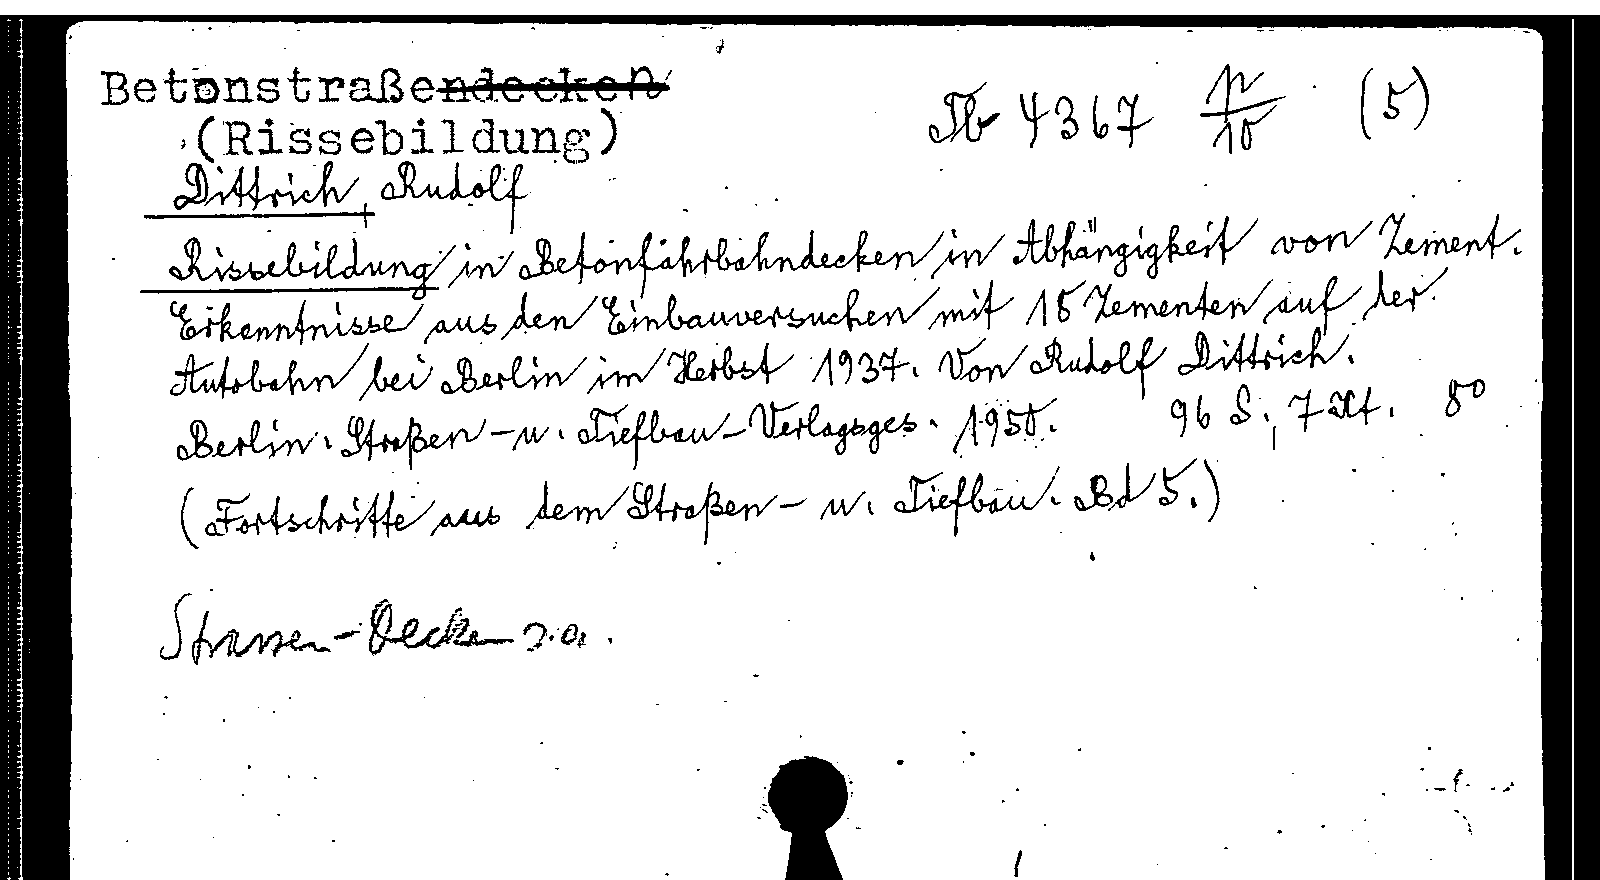 Betonstraßendecken
(Rissebildung)
Tb 4367 n/10 (5)
Dittrich, Rudolf
Rissebildung in Betonfahrbahndecken in Abhängigkeit von Zement.
Erkenntnisse aus den Einbauversuchen mit 18 Zementen auf der
Autobahn bei Berlin im Herbst 1937. Von Rudolf Dittrich.
Berlin: Straßen- u. Tiefbau-Verlagsges. 1950. 96 S., 7 Xt. 8°
(Fortschritte aus dem Straßen- u. Tiefbau. Bd 5.)
Strassen-Decken